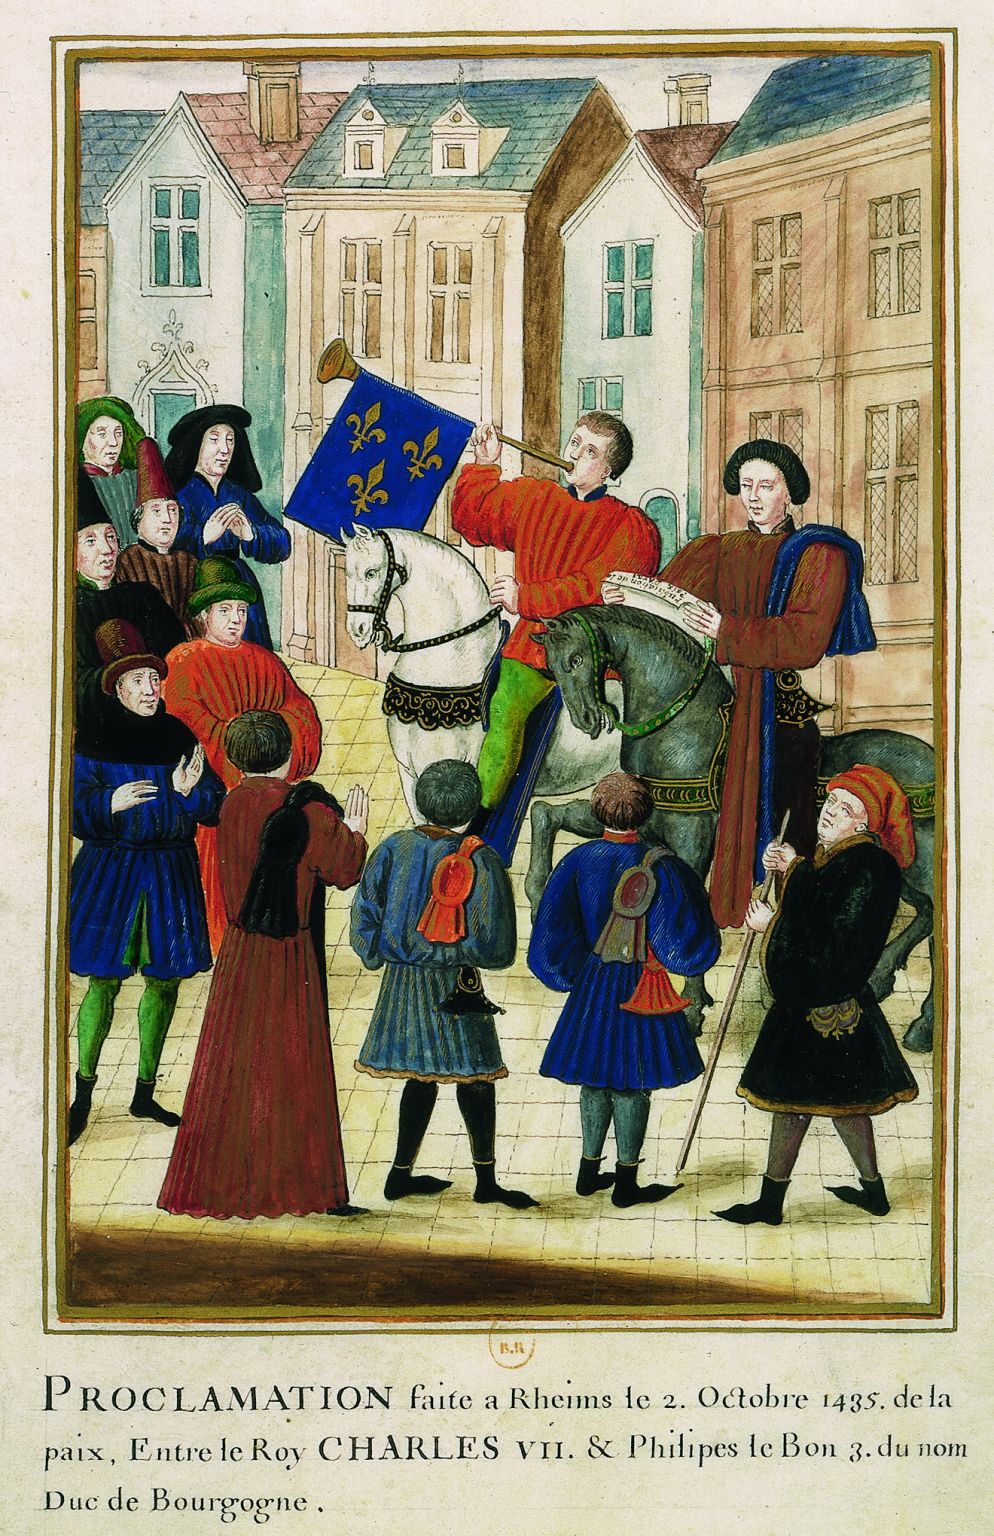 B.R
PROCLAMATION faite a Rheims le 2. Octobre 1435. de la
paix, Entre le Roy CHARLES VII. & Philipes le Bon 3. du nom
Duc de Bourgogne.